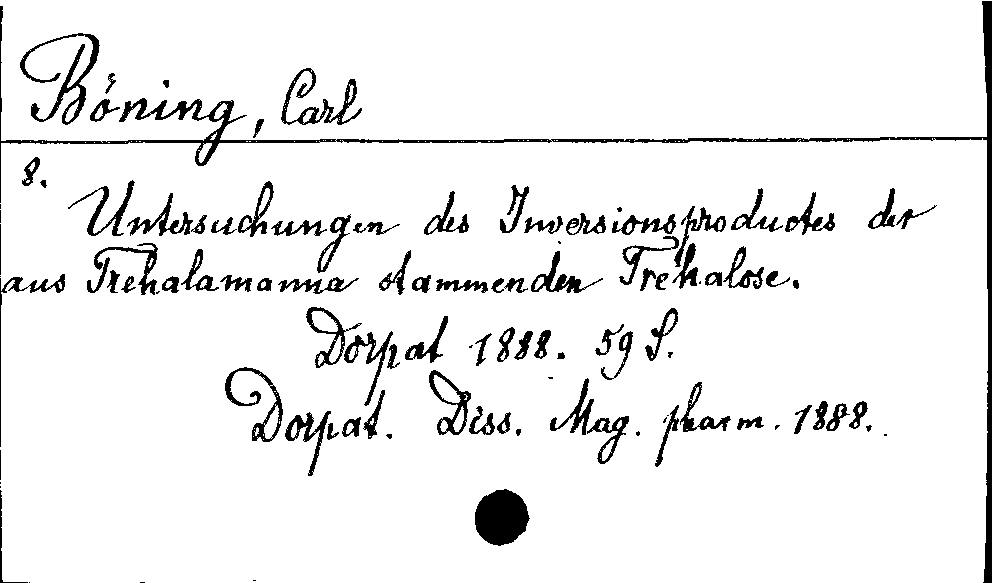 Böning, Carl
8.
Untersuchungen des Inversionsproductes der
aus Trehalamanna stammenden Trehalose.
Dorpat 1888. 59 S.
Dorpat. Diss. Mag. pharm. 1888.